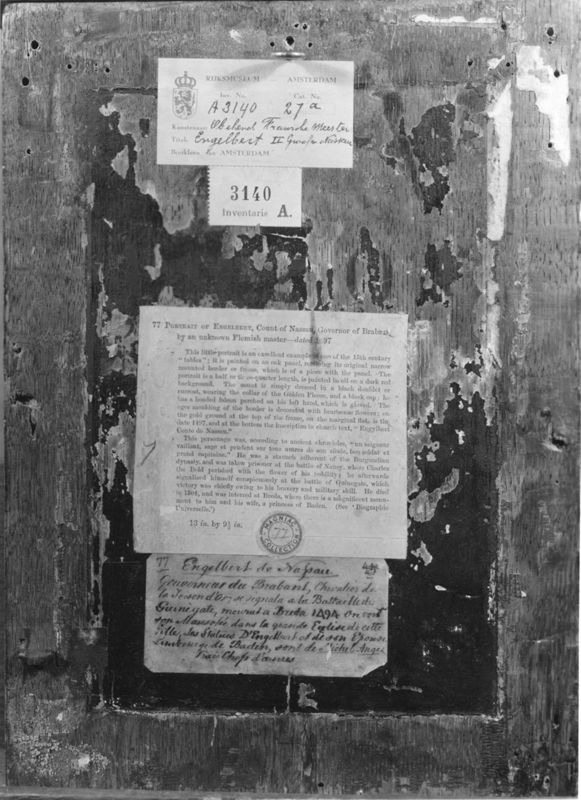 RIJKSMUSEUM — AMSTERDAM
Inv. No. Cat. No.
A 3140 27a
Kunstenaar: Fransche Meester
Titel: Engelbert II Graaf v Nassau
AMSTERDAM
3140
Inventaris A.
77 PORTRAIT OF ENGELBERT, Count of Nassau, Governor of Brabant,
by an unknown Flemish master—dated
This little portrait is an excellent example of the 15th century
it is painted on an oak panel, its original narrow
moulded border or frame, which is of a piece with the panel. The
portrait is a half or three-quarter length, is painted in oil on a dark red
background. The count is simply dressed in a black doublet or
surcoat, wearing the collar of the Golden Fleece, and a black cap; he
has a hooded falcon perched on his left hand, which is gloved. The
moulding of the border is decorated with flowers; on
the gold ground at the top of the frame, on the marginal flat, is the
date 1497, and at the bottom the inscription in church text, "Engylbert
Conte de Nassau."
This personage was, according to ancient chronicles, "un seigneur
vaillant, sage et prudent sur tous autres de son siècle, bon soldat et
grand capitaine." He was a staunch adherent of the Burgundian
dynasty, and was taken prisoner at the battle of Nancy, where Charles
the Bold perished with the flower of his nobility; he afterwards
signalised himself conspicuously at the battle of Guinegate, which
victory was chiefly owing to his bravery and military skill. He died
in 1504, and was interred at Breda, where there is a magnificent monu-
ment to him and his wife, a princess of Baden. (See 'Biographie
Universelle.')
13 in. by 9½ in.
MAGNIAC
77
COLLECTION
77
Engelbert de Nassau
Gouverneur du Brabant, Chevalier de
la Toison d'or, se signala a la Battaille de
Guinégate, mourut à Breda 1494. On voit
son Mausolée dans la grande Eglise de cette
Ville, les Statues D'Engelbert et de son Epouse
Limbourg de Baden, sont de Michel Ange,
Vrais Chefs d'œuvres